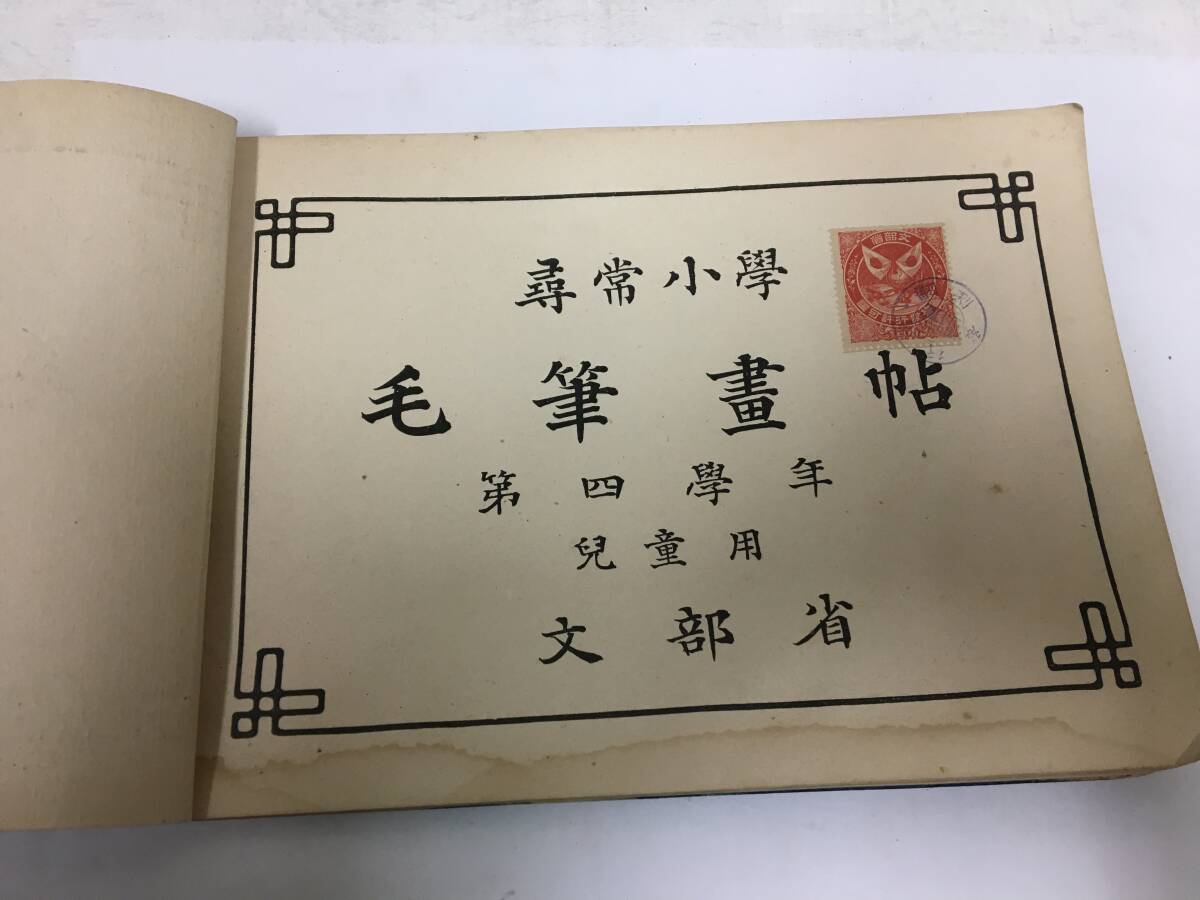 尋常小學
毛筆畫帖
第四學年
兒童用
文部省
文部省